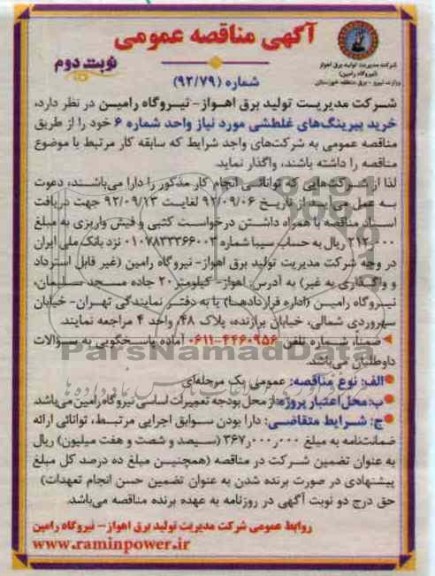 آگهی مناقصه عمومی
نوبت دوم
شرکت مدیریت تولید برق اهواز
(نیروگاه رامین)
وزارت نیرو - برق منطقه خوزستان
شماره (۹۲/۷۹)
شرکت مدیریت تولید برق اهواز- نیروگاه رامین در نظر دارد،
خرید بیرینگ‌های غلطشی مورد نیاز واحد شماره ۶ خود را از طریق
مناقصه عمومی به شرکت‌های واجد شرایط که سابقه کار مرتبط با موضوع
مناقصه را داشته باشند، واگذار نماید.
لذا از شرکت‌هایی که توانائی انجام کار مذکور را دارا می‌باشند، دعوت
به عمل می‌آید از تاریخ ۹۲/۰۹/۰۶ لغایت ۹۲/۰۹/۱۳ جهت دریافت
اسناد مناقصه با همراه داشتن درخواست کتبی و فیش واریزی به مبلغ
۲۱۲٫۰۰۰ ریال به حساب سیبا شماره ۰۱۰۷۸۳۳۳۶۶۰۰۳ نزد بانک ملی ایران
در وجه شرکت مدیریت تولید برق اهواز- نیروگاه رامین (غیر قابل استرداد
و واگذاری به غیر) به آدرس: اهواز- کیلومتر ۲۰ جاده مسجد سلیمان،
نیروگاه رامین (اداره قراردادها) یا به دفتر نمایندگی تهران- خیابان
سهروردی شمالی، خیابان برازنده، پلاک ۴۸، واحد ۴ مراجعه نمایند.
ضمناً، شماره تلفن ۴۴۶۰۹۵۶-۰۶۱۱ آماده پاسخگویی به سوالات
داوطلبان می‌باشد.
الف: نوع مناقصه: عمومی یک مرحله‌ای
ب: محل اعتبار پروژه: از محل بودجه تعمیرات اساسی نیروگاه رامین می‌باشد
ج: شرایط متقاضی: دارا بودن سوابق اجرایی مرتبط، توانائی ارائه
ضمانت‌نامه به مبلغ ۳۶۷٫۰۰۰٫۰۰۰ (سیصد و شصت و هفت میلیون) ریال
به عنوان تضمین شرکت در مناقصه (همچنین مبلغ ده درصد کل مبلغ
پیشنهادی در صورت برنده شدن به عنوان تضمین حسن انجام تعهدات)
حق درج دو نوبت آگهی در روزنامه به عهده برنده مناقصه می‌باشد.
روابط عمومی شرکت مدیریت تولید برق اهواز- نیروگاه رامین
www.raminpower.ir
ParsNamadData